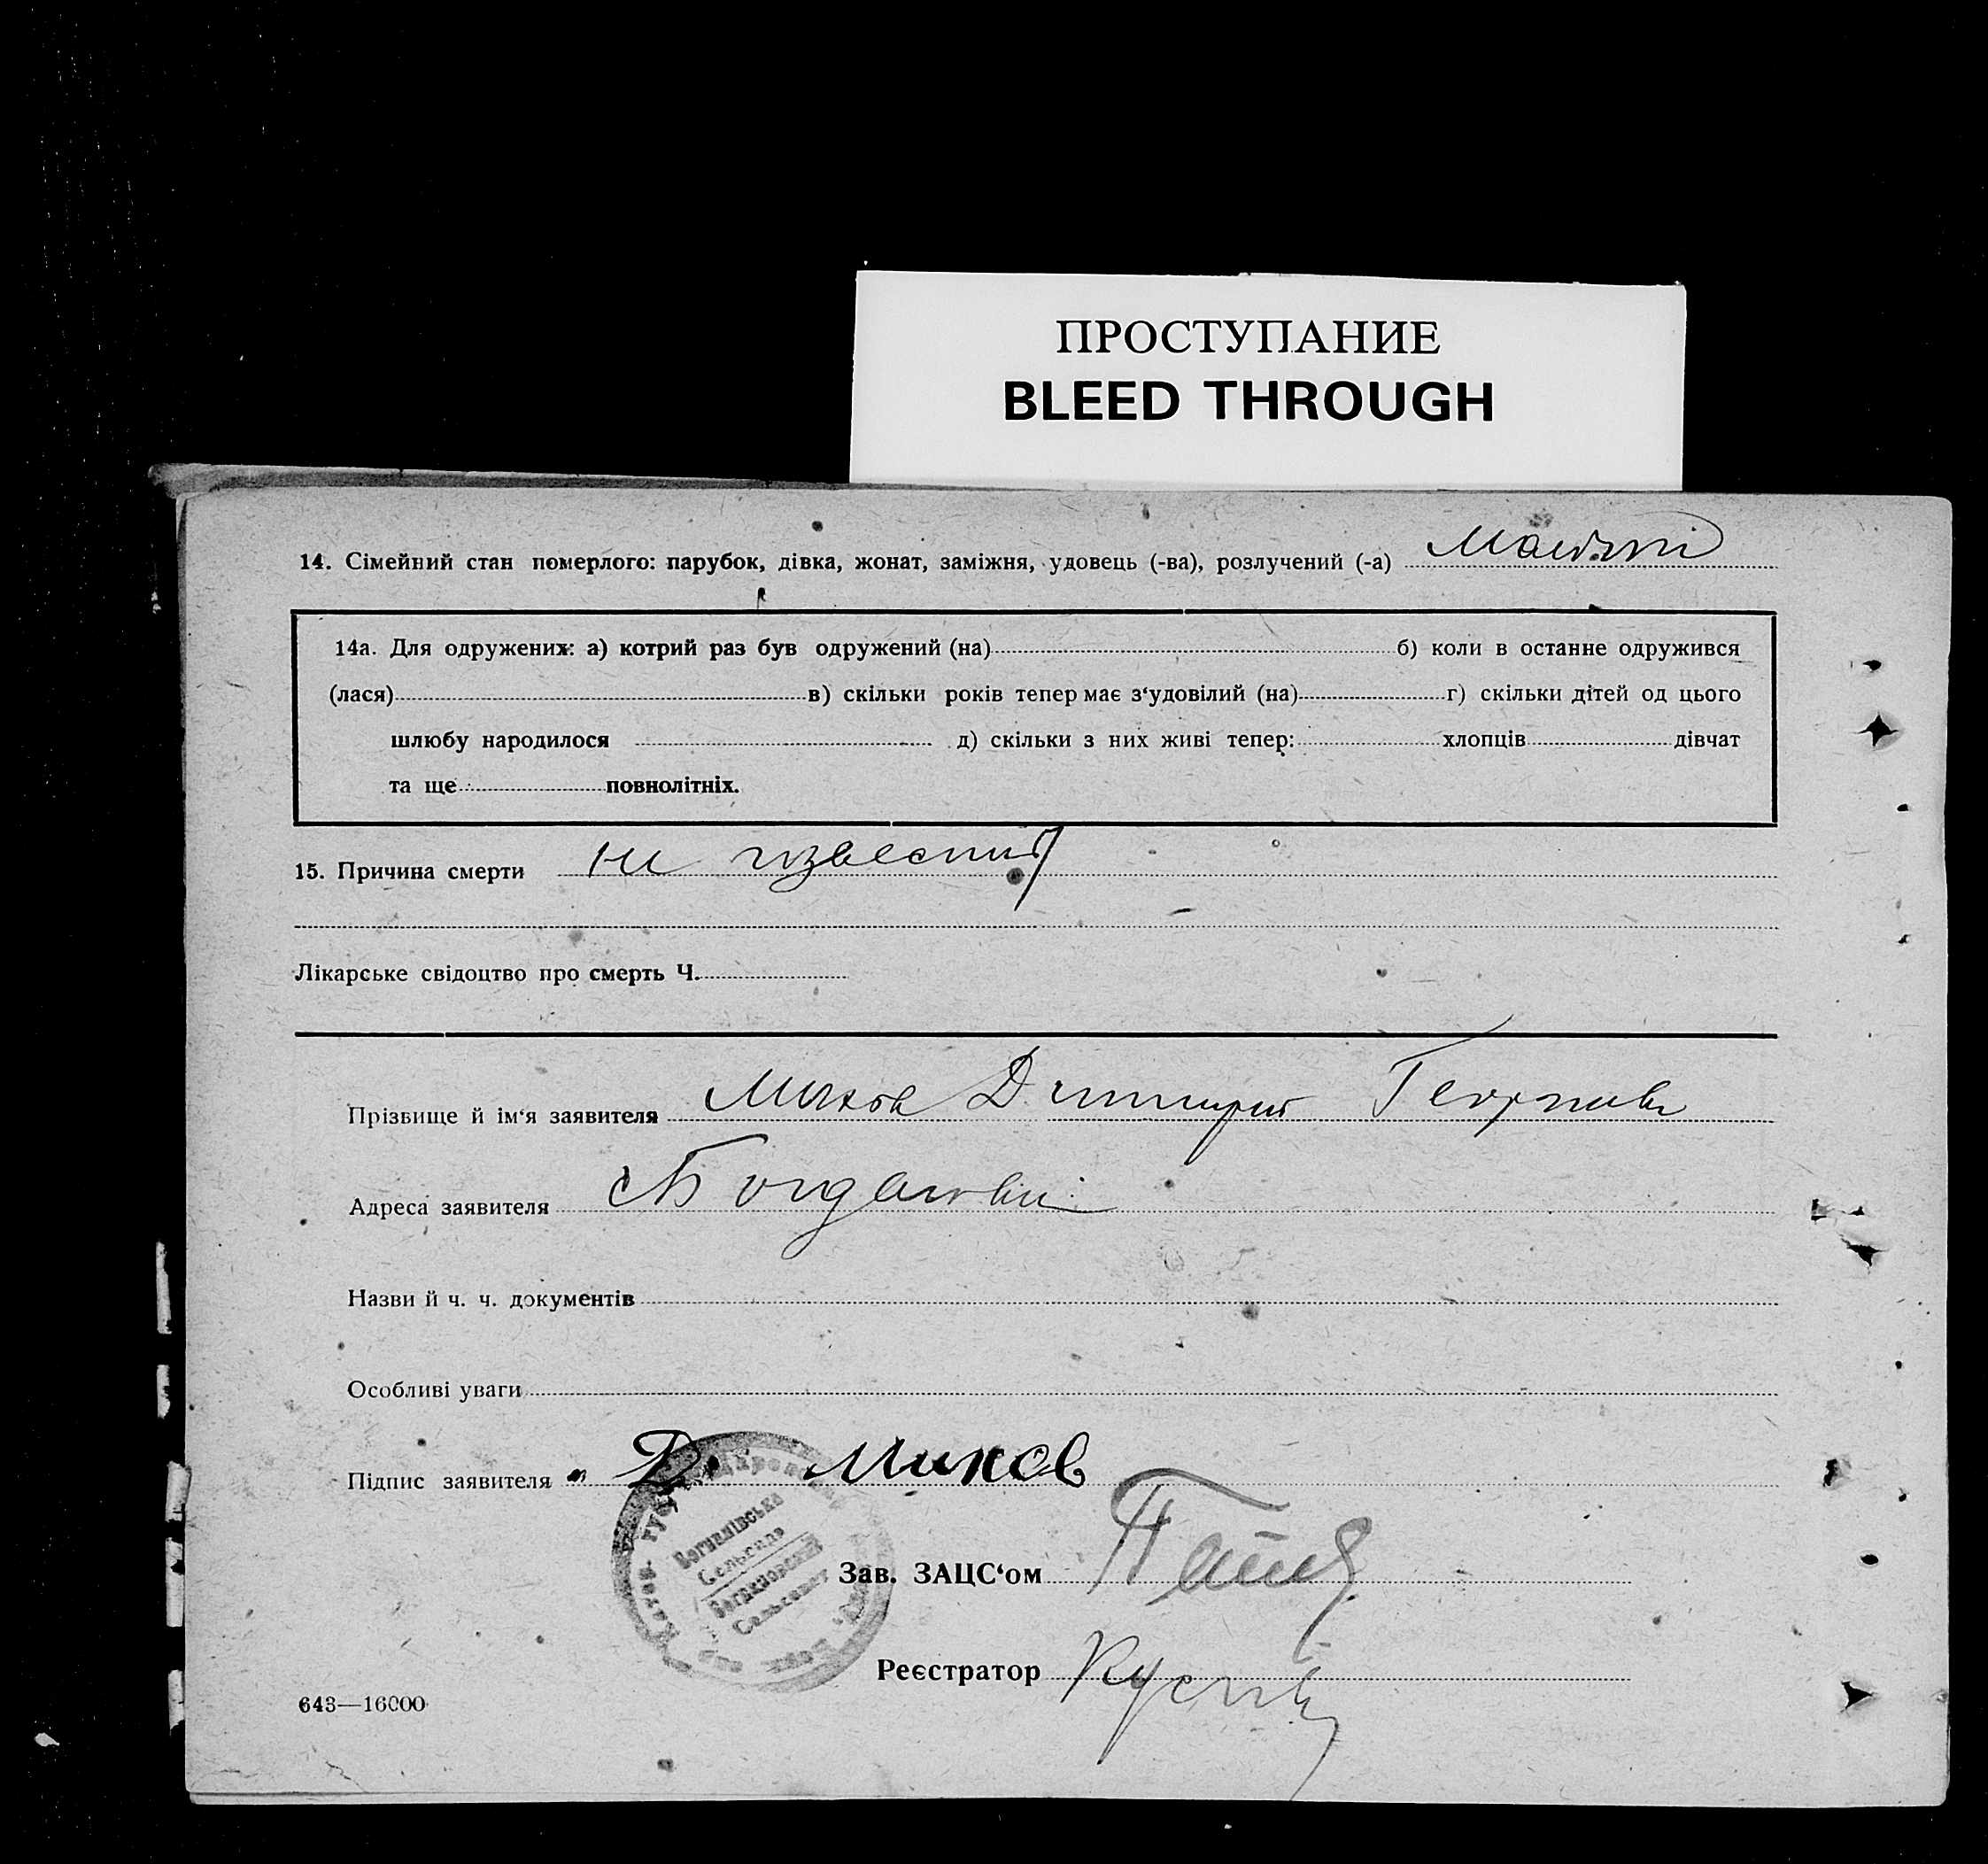 ПРОСТУПАНИЕ
BLEED THROUGH
14. Сімейний стан померлого: парубок, дівка, жонат, заміжня, удовець (-ва), розлучений (-а)
14а. Для одружених: а) котрий раз був одружений (на) б) коли в останне одружився
(лася) в) скільки років тепер має з‘удовілий (на) г) скільки дітей од цього
шлюбу народилося д) скільки з них живі тепер: хлопців дівчат
та ще повнолітніх.
15. Причина смерти
Лікарське свідоцтво про смерть Ч.
Прізвище й ім‘я заявителя Миков Димитрий
Адреса заявителя
Назви й ч. ч. документів
Особливі уваги
Підпис заявителя Д. Миков
Зав. ЗАЦС‘ом
Реєстратор
643—16000